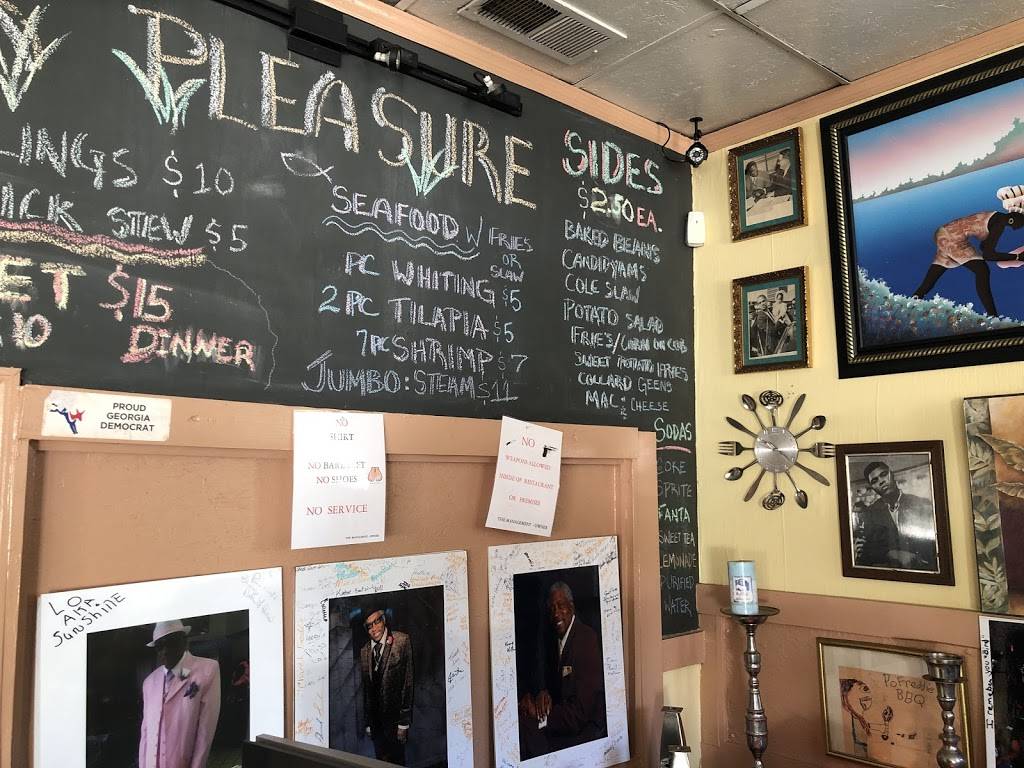 PLEASURE
LINGS $10
ICK STEW $5
ET $15
10 DINNER
SEAFOOD W/ FRIES
OR
SLAW
PC WHITING $5
2 PC TILAPIA $5
7 PC SHRIMP $7
JUMBO: STEAM $11
SIDES
$2.50 EA.
BAKED BEANS
CANDIDYAMS
COLE SLAW
POTATO SALAD
FRIES/CORN ON COB
SWEET POTATO FRIES
COLLARD GEENS
MAC & CHEESE
SODAS
COKE
SPRITE
FANTA
SWEET TEA
LEMONADE
PURIFIED
WATER
PROUD
GEORGIA
DEMOCRAT
NO
SHIRT
NO BARE FEET
NO SHOES
NO SERVICE
THE MANAGEMENT - OWNER
NO
WEAPONS ALLOWED
INSIDE OF RESTAURANT
OR PREMISES
THE MANAGEMENT - OWNER
SUNSHINE
BBQ